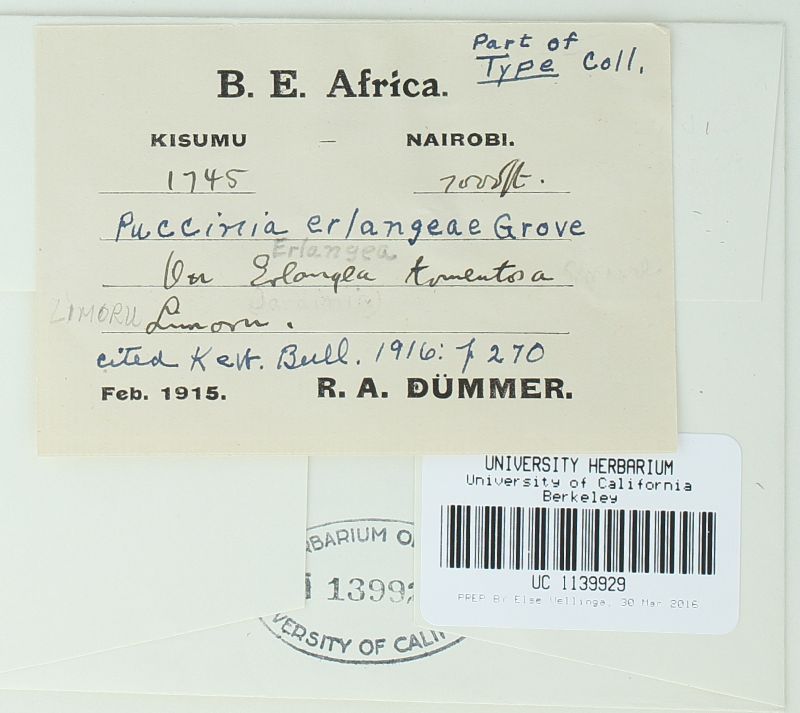 Part of
Type Coll.
B. E. Africa.
KISUMU – NAIROBI.
1745 7000ft.
Puccinia erlangeae Grove
Erlangea
On Erlangea tomentosa
LIMORU Limoru.
cited Kew. Bull. 1916: p 270
Feb. 1915. R. A. DÜMMER.
UNIVERSITY HERBARIUM
University of California
Berkeley
UC 1139929
PREP BY Else Vellinga, 30 Mar 2016
RBARIUM O
13992
VERSITY OF CALI